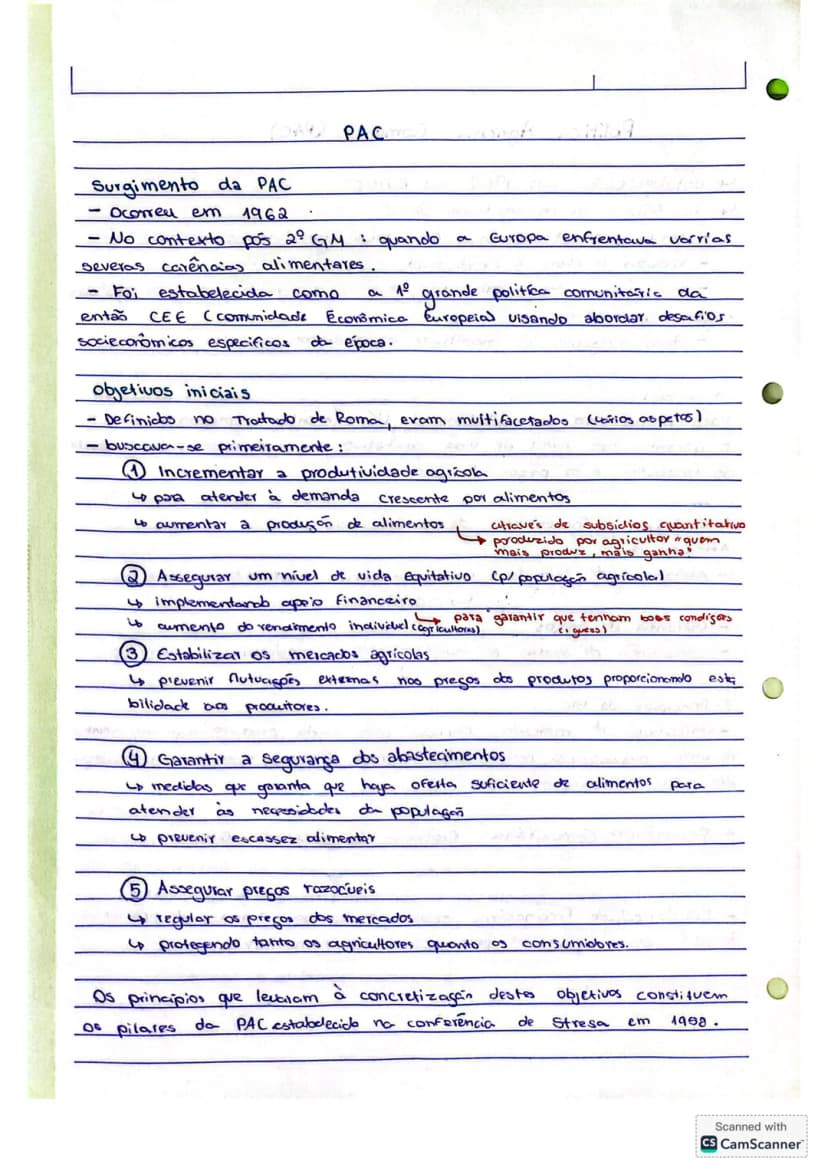 PAC
Surgimento da PAC
- Ocorreu em 1962.
- No contexto pós 2º GM : quando a Europa enfrentava varrias
severas carências alimentares.
- Foi estabelecida como a 1º grande politica comunitária da
então CEE (comunidade Econômica Europeia) visando abordar desafios
socieconômicos especificos da época.
Objetivos iniciais
- Definidos no Tratado de Roma, eram multifacetados (vários aspetos)
- buscava-se primeiramente :
① Incrementar a produtividade agrícola
↳ para atender à demanda crescente por alimentos
↳ aumentar a produção de alimentos
através de subsídios quantitativo
→ produzido por agricultor "quem
mais produz, mais ganha"
② Assegurar um nível de vida Equitativo (p/ população agrícola)
↳ implementando apoio financeiro
→ para garantir que tenham boas condições
↳ aumento do rendimento individuel (agricultores)
③ Estabilizar os mercados agrícolas
↳ prevenir flutuações externas nos preços dos produtos proporcionando esta
bilidade aos produtores.
④ Garantir a segurança dos abastecimentos
↳ medidas que garanta que haja oferta suficiente de alimentos para
atender às necessidades da população
↳ prevenir escassez alimentar
⑤ Assegurar preços razoáveis
↳ regular os preços dos mercados
↳ protegendo tanto os agricultores quanto os consumidores.
Os princípios que levaram à concretização destes objetivos constituem
os pilares da PAC estabelecido na conferência de Stresa em 1958.
Scanned with
CS CamScanner